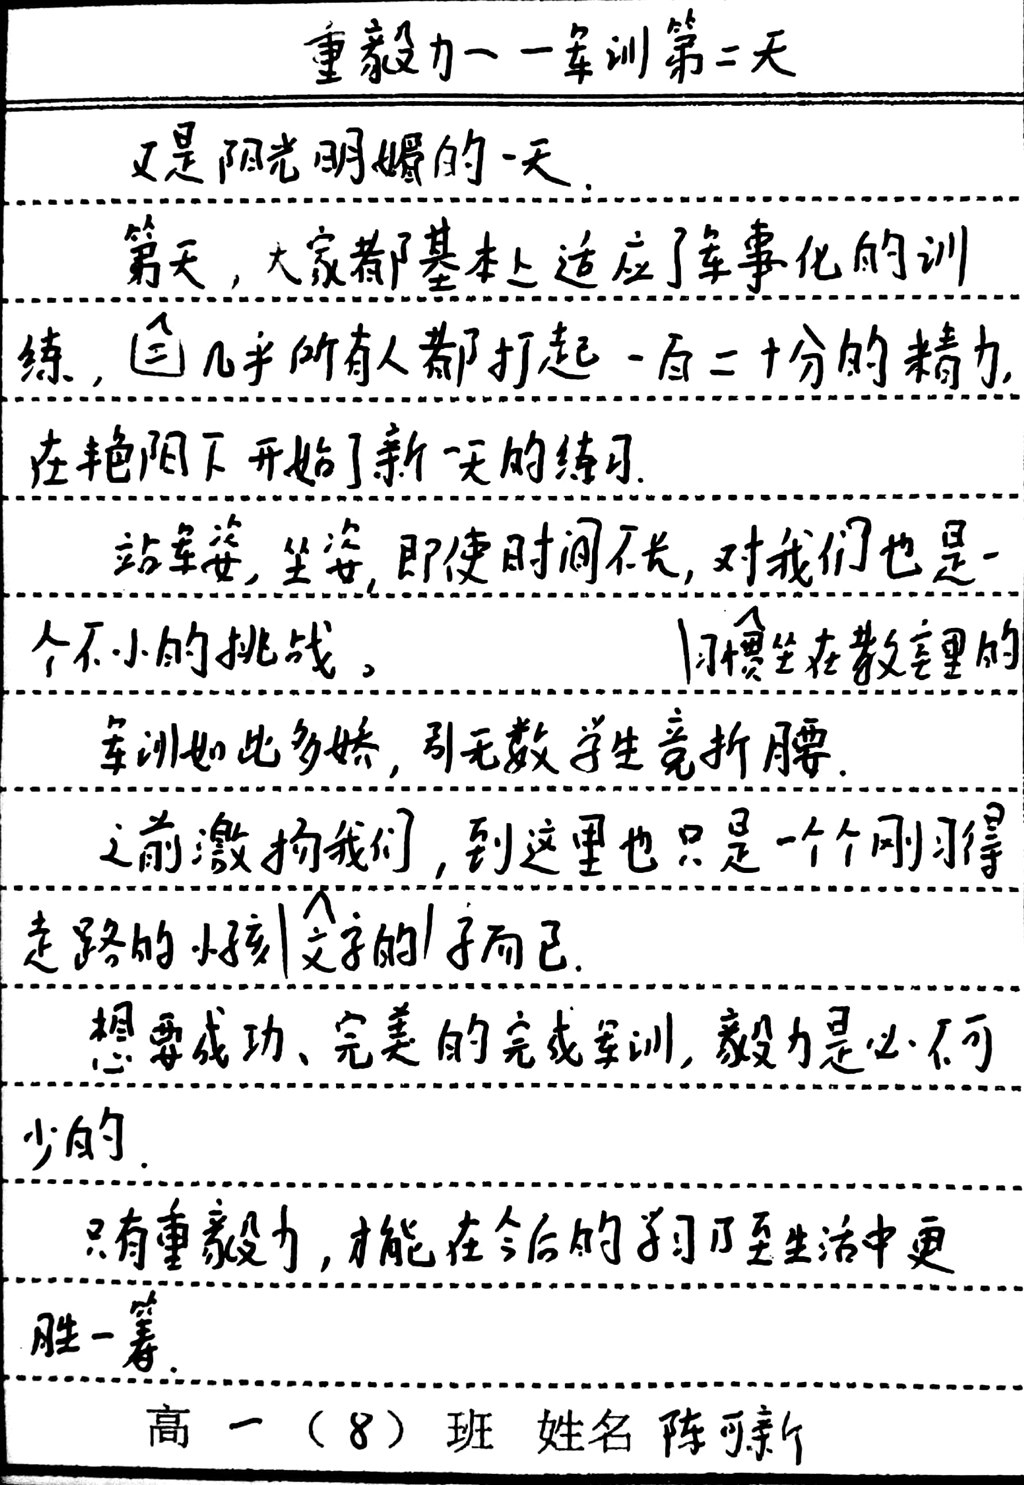 重毅力——军训第二天
又是阳光明媚的一天.
第天，大家都基本上适应了军事化的训
练，二几乎所有人都打起一百二十分的精力,
在艳阳下开始了新一天的练习.
站军姿,坐姿,即使时间不长,对我们也是一
个不小的挑战。 习惯坐在教室里的
军训如此多娇,引无数学生竞折腰.
之前激扬我们,到这里也只是一个个刚习得
走路的小孩文字的子而已.
想要成功、完美的完成军训,毅力是必不可
少的.
只有重毅力,才能在今后的学习乃至生活中更
胜一筹.
高一（8）班 姓名 陈可新